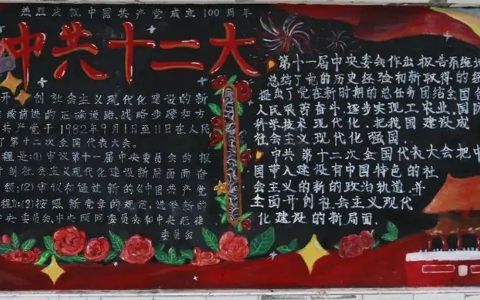 热烈庆祝中国共产党成立100周年
中共十二大
开创社会主义现代化建设的新
正确道路、战略步骤和方
共产党于1982年9月1日至11日在人民
十二次全国代表大会
程是:(1)审议第十一届中央委员会的报
创社会主义现代化建设新局面而奋
(2)审议和通过新的《中国共产党
(3)按照新党章的规定,选举新的
央委员会、中央顾问委员会和中央纪律
委员会
第十一届中央委员会作出报告系统地
总结了党的历史经验和新取得的经
提出了党在新时期的总任务团结全国各
人民艰苦奋斗,逐步实现工农业、国防
科学技术现代化,把我国建设成
社会主义现代化强国
中共第十二次全国代表大会把中
国带入建设有中国特色的社
会主义的新的政治轨道,并
全面开创社会主义现代
化建设的新局面.